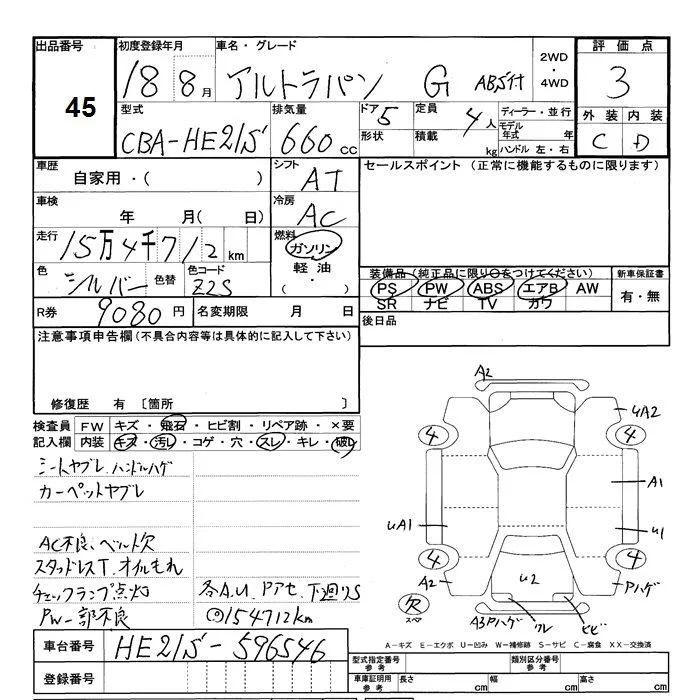 出品番号
45
初度登録年月
18 8月
車名・グレード
アルトラパン G ABS付
2WD
・
4WD
評価点
3
外装 内装
C D
型式
CBA-HE21S
排気量
660 cc
ドア 5
形状
定員 4人
積載 kg
ディーラー・並行
モデル年式 年
ハンドル 左・右
車歴
自家用・( )
シフト
AT
セールスポイント (正常に機能するものに限ります)
車検
年 月( 日)
冷房
AC
走行
15万4千712km
燃料
ガソリン
軽油
・( )
色
シルバー
色替
色コード
Z2S
装備品 (純正品に限り○をつけてください)
PS PW ABS エアB AW
SR ナビ TV カワ
新車保証書
有・無
R券 9080円
名変期限 月 日
後日品
注意事項申告欄(不具合内容等は具体的に記入して下さい)
修復歴 有 〔箇所 〕
検査員 FW キズ・飛石・ヒビ割・リペア跡・×要
記入欄 内装 キズ・汚レ・コゲ・穴・スレ・キレ・破レ
シートヤブレ、ハンドルハゲ
カーペットヤブレ
AC不良、ベルト欠
スタッドレスT、オイルもれ
チェックランプ点灯
PW一部不良
各A.U、Pアセ、下廻りS
◎154712km
A2
4
4
UA2
A1
UA1
U1
4
4
A2
U2
Pハゲ
欠
スペア
A3Pハゲ
ワレ
ヒビ
A-キズ E-エクボ U-凹み W-補修跡 S-サビ C-腐食 XX-交換済
車台番号 HE21S-596546
登録番号
型式指定番号
参考
類別区分番号
参考
車庫証明用
参考
長さ cm
幅 cm
高さ cm